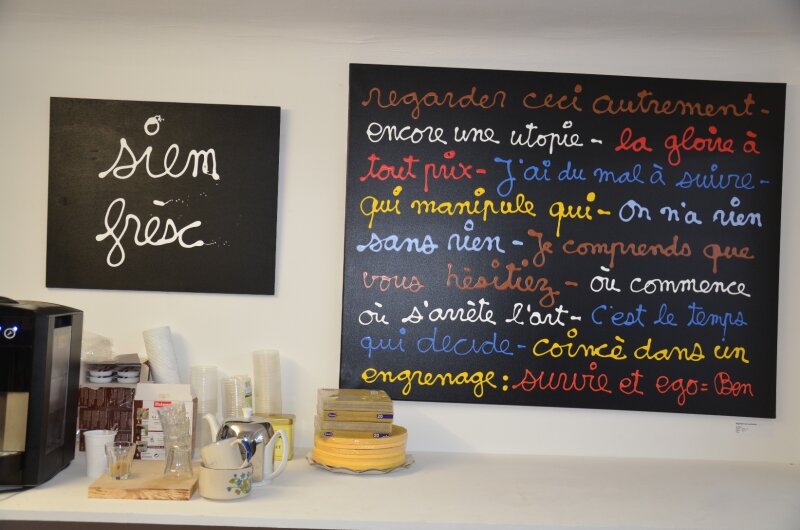 siem
frèsc
regarder ceci autrement-
encore une utopie- la gloire à
tout prix- J'ai du mal à suivre-
qui manipule qui- On n'a rien
sans rien- Je comprends que
vous hèsitiez- où commence
où s'arrête l'art- C'est le temps
qui decide- coincè dans un
engrenage: survie et ego= Ben